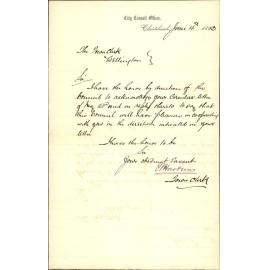 City Council Office,
Christchurch, June 4th 1883
The Town Clerk
Wellington
Sir
I have the honor by direction of the
Council to acknowledge your Circular letter
of May and in reply thereto to say that
this Council will have pleasure in cooperating
with you in the direction indicated in your
letter
I have the honor to be
Sir
Your obedient Servant
Haskins
Town Clerk